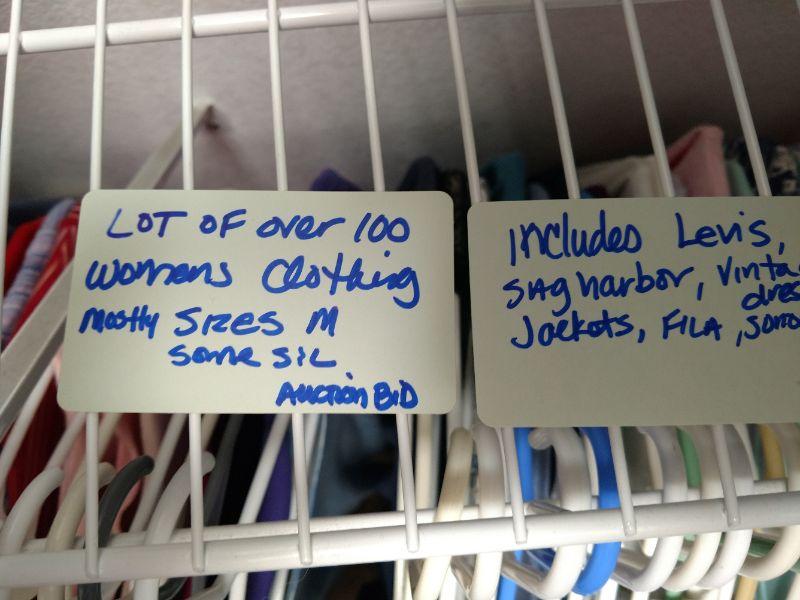 LOT OF over 100
womens Clothing
mostly SIZES M
some S:L
AUCTION BID
INCludes Levis,
SAg harbor, Vinta
dres
Jackets, FILA, som